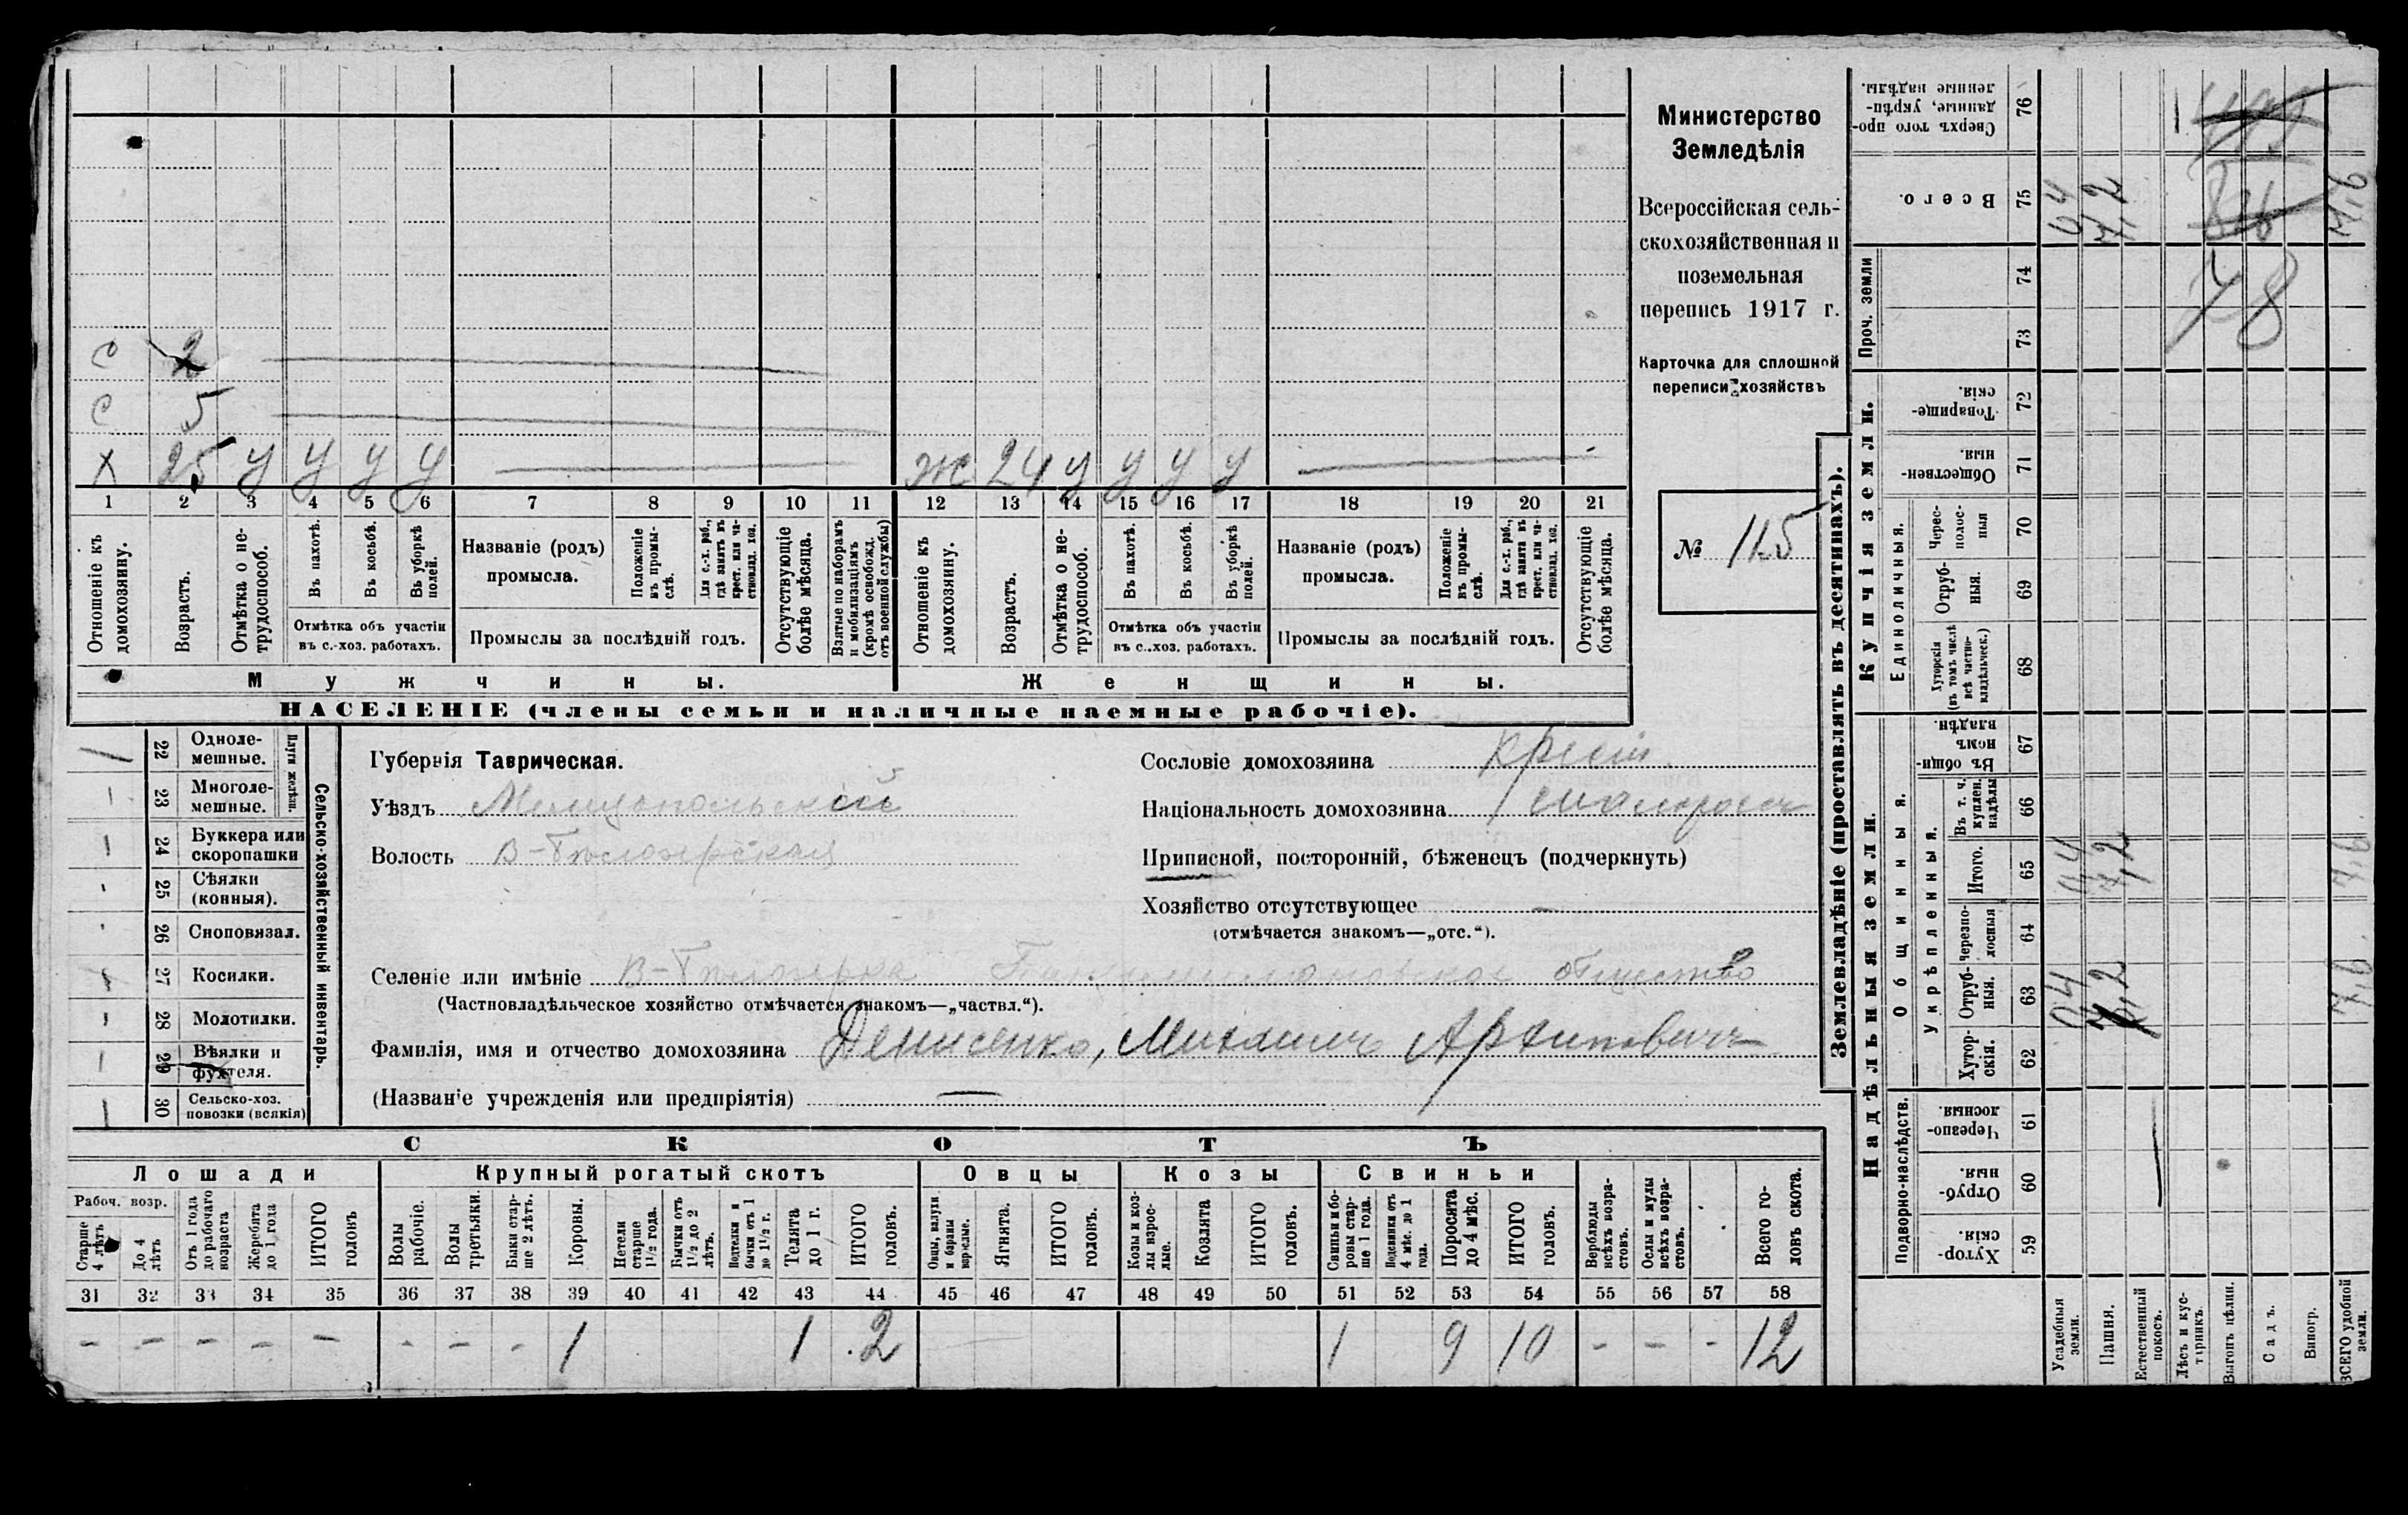 С 2
С 5
Х 25 У У У У — Ж 24 У У У У —
1 2 3 4 5 6 7 8 9 10 11 12 13 14 15 16 17 18 19 20 21
Отношеніе къ домохозяину.
Возрастъ.
Отмѣтка о не-трудоспособ.
Въ пахотѣ.
Въ косьбѣ.
Въ уборкѣ полей.
Отмѣтка объ участіи
въ с.-хоз. работахъ.
Названіе (родъ)
промысла.
Положеніе въ промы-слѣ.
Для с.-х. раб., гдѣ занятъ въ крест. или ча-стновлад. хоз.
Промыслы за послѣдній годъ.
Отсутствующіе болѣе мѣсяца.
Взятые по наборамъ и мобилизаціямъ (кромѣ освобожд. отъ военной службы)
Отношеніе къ домохозяину.
Возрастъ.
Отмѣтка о не-трудоспособ.
Въ пахотѣ.
Въ косьбѣ.
Въ уборкѣ полей.
Отмѣтка объ участіи
въ с..хоз. работахъ.
Названіе (родъ)
промысла.
Положеніе въ промы-слѣ.
Для с.-х. раб., гдѣ занята въ крест. или ча-стновлад. хоз.
Промыслы за послѣдній годъ.
Отсутствующіе болѣе мѣсяца.
Мужчины.
Женщины.
НАСЕЛЕНІЕ (члены семьи и наличные наемные рабочіе).
Министерство
Земледѣлія
Всероссійская сель-
скохозяйственная и
поземельная
перепись 1917 г.
Карточка для сплошной
переписи хозяйствъ
№ 115
22 Одноле-
мешные.
23 Многоле-
мешные.
Плуги желѣзн.
24 Буккера или
скоропашки
25 Сѣялки
(конныя).
26 Сноповязал.
27 Косилки.
28 Молотилки.
29 Вѣялки и
фухтеля.
30 Сельско-хоз.
повозки (всякія)
Сельско-хозяйственный инвентарь.
Губернія Таврическая.
Уѣздъ Мелитопольскій
Волость В-Бѣлозерская
Сословіе домохозяина крест.
Національность домохозяина малоросъ
Приписной, посторонній, бѣженецъ (подчеркнуть)
Хозяйство отсутствующее —
(отмѣчается знакомъ—„отс.“).
Селеніе или имѣніе В-Бѣлозерка общество
(Частновладѣльческое хозяйство отмѣчается знакомъ—„частвл.“).
Фамилія, имя и отчество домохозяина Денисенко, Михаилъ Архиповичъ
(Названіе учрежденія или предпріятія) —
СКОТЪ
Лошади Крупный рогатый скотъ Овцы Козы Свиньи
Рабоч. возр.
Старше 4 лѣтъ
До 4 лѣтъ
Отъ 1 года до рабочаго возраста
Жеребята до 1 года
ИТОГО головъ
Волы рабочіе.
Волы третьяки.
Быки стар-ше 2 лѣтъ.
Коровы.
Нетели старше 1½ года.
Бычки отъ 1½ до 2 лѣтъ.
Подтелки и бычки отъ 1 до 1½ г.
Телята до 1 г.
ИТОГО головъ.
Овцы, валухи и бараны взрослые.
Ягнята.
ИТОГО головъ.
Козы и коз-лы взрос-лые.
Козлята
ИТОГО головъ.
Свиньи и бо-ровы стар-ше 1 года.
Подсвинки отъ 4 мѣс. до 1 года.
Поросята до 4 мѣс.
ИТОГО головъ.
Верблюды всѣхъ возра-стовъ.
Ослы и мулы всѣхъ возра-стовъ.
Всего го-ловъ скота.
31 32 33 34 35 36 37 38 39 40 41 42 43 44 45 46 47 48 49 50 51 52 53 54 55 56 57 58
– – – – – – – – 1 1 2 1 9 10 – – – 12
Землевладѣніе (проставлять въ десятинахъ).
Купчія земли.
Надѣльныя земли.
Сверхъ того про-данные, укрѣп-ленные надѣлы. 76
Всего. 75 0,4 7,2 7,6
Проч. земли 74 73
78
Товарище-скія. 72
Обществен-ныя. 71
Единоличныя.
Черес-полос-ныя 70
Отруб-ныя. 69
Хуторскія (въ томъ числѣ всѣ частно-владѣльческ.) 68
Общинныя.
Въ общин-номъ владѣн. 67
Укрѣпленныя.
Въ т. ч. куплен. надѣлы 66
Итого. 65 0,4 7,2 7,6
Черезпо-лосныя 64
Отруб-ныя. 63 0,4 7,2 7,6
Хутор-скія. 62
Подворно-наслѣдств.
Черезпо-лосныя. 61
Отруб-ныя. 60
Хутор-скія. 59
Усадебныя земли.
Пашня.
Естественный покосъ.
Лѣсъ и кус-тарникъ.
Выгонъ цѣлин.
Садъ.
Виногр.
ВСЕГО удобной земли.